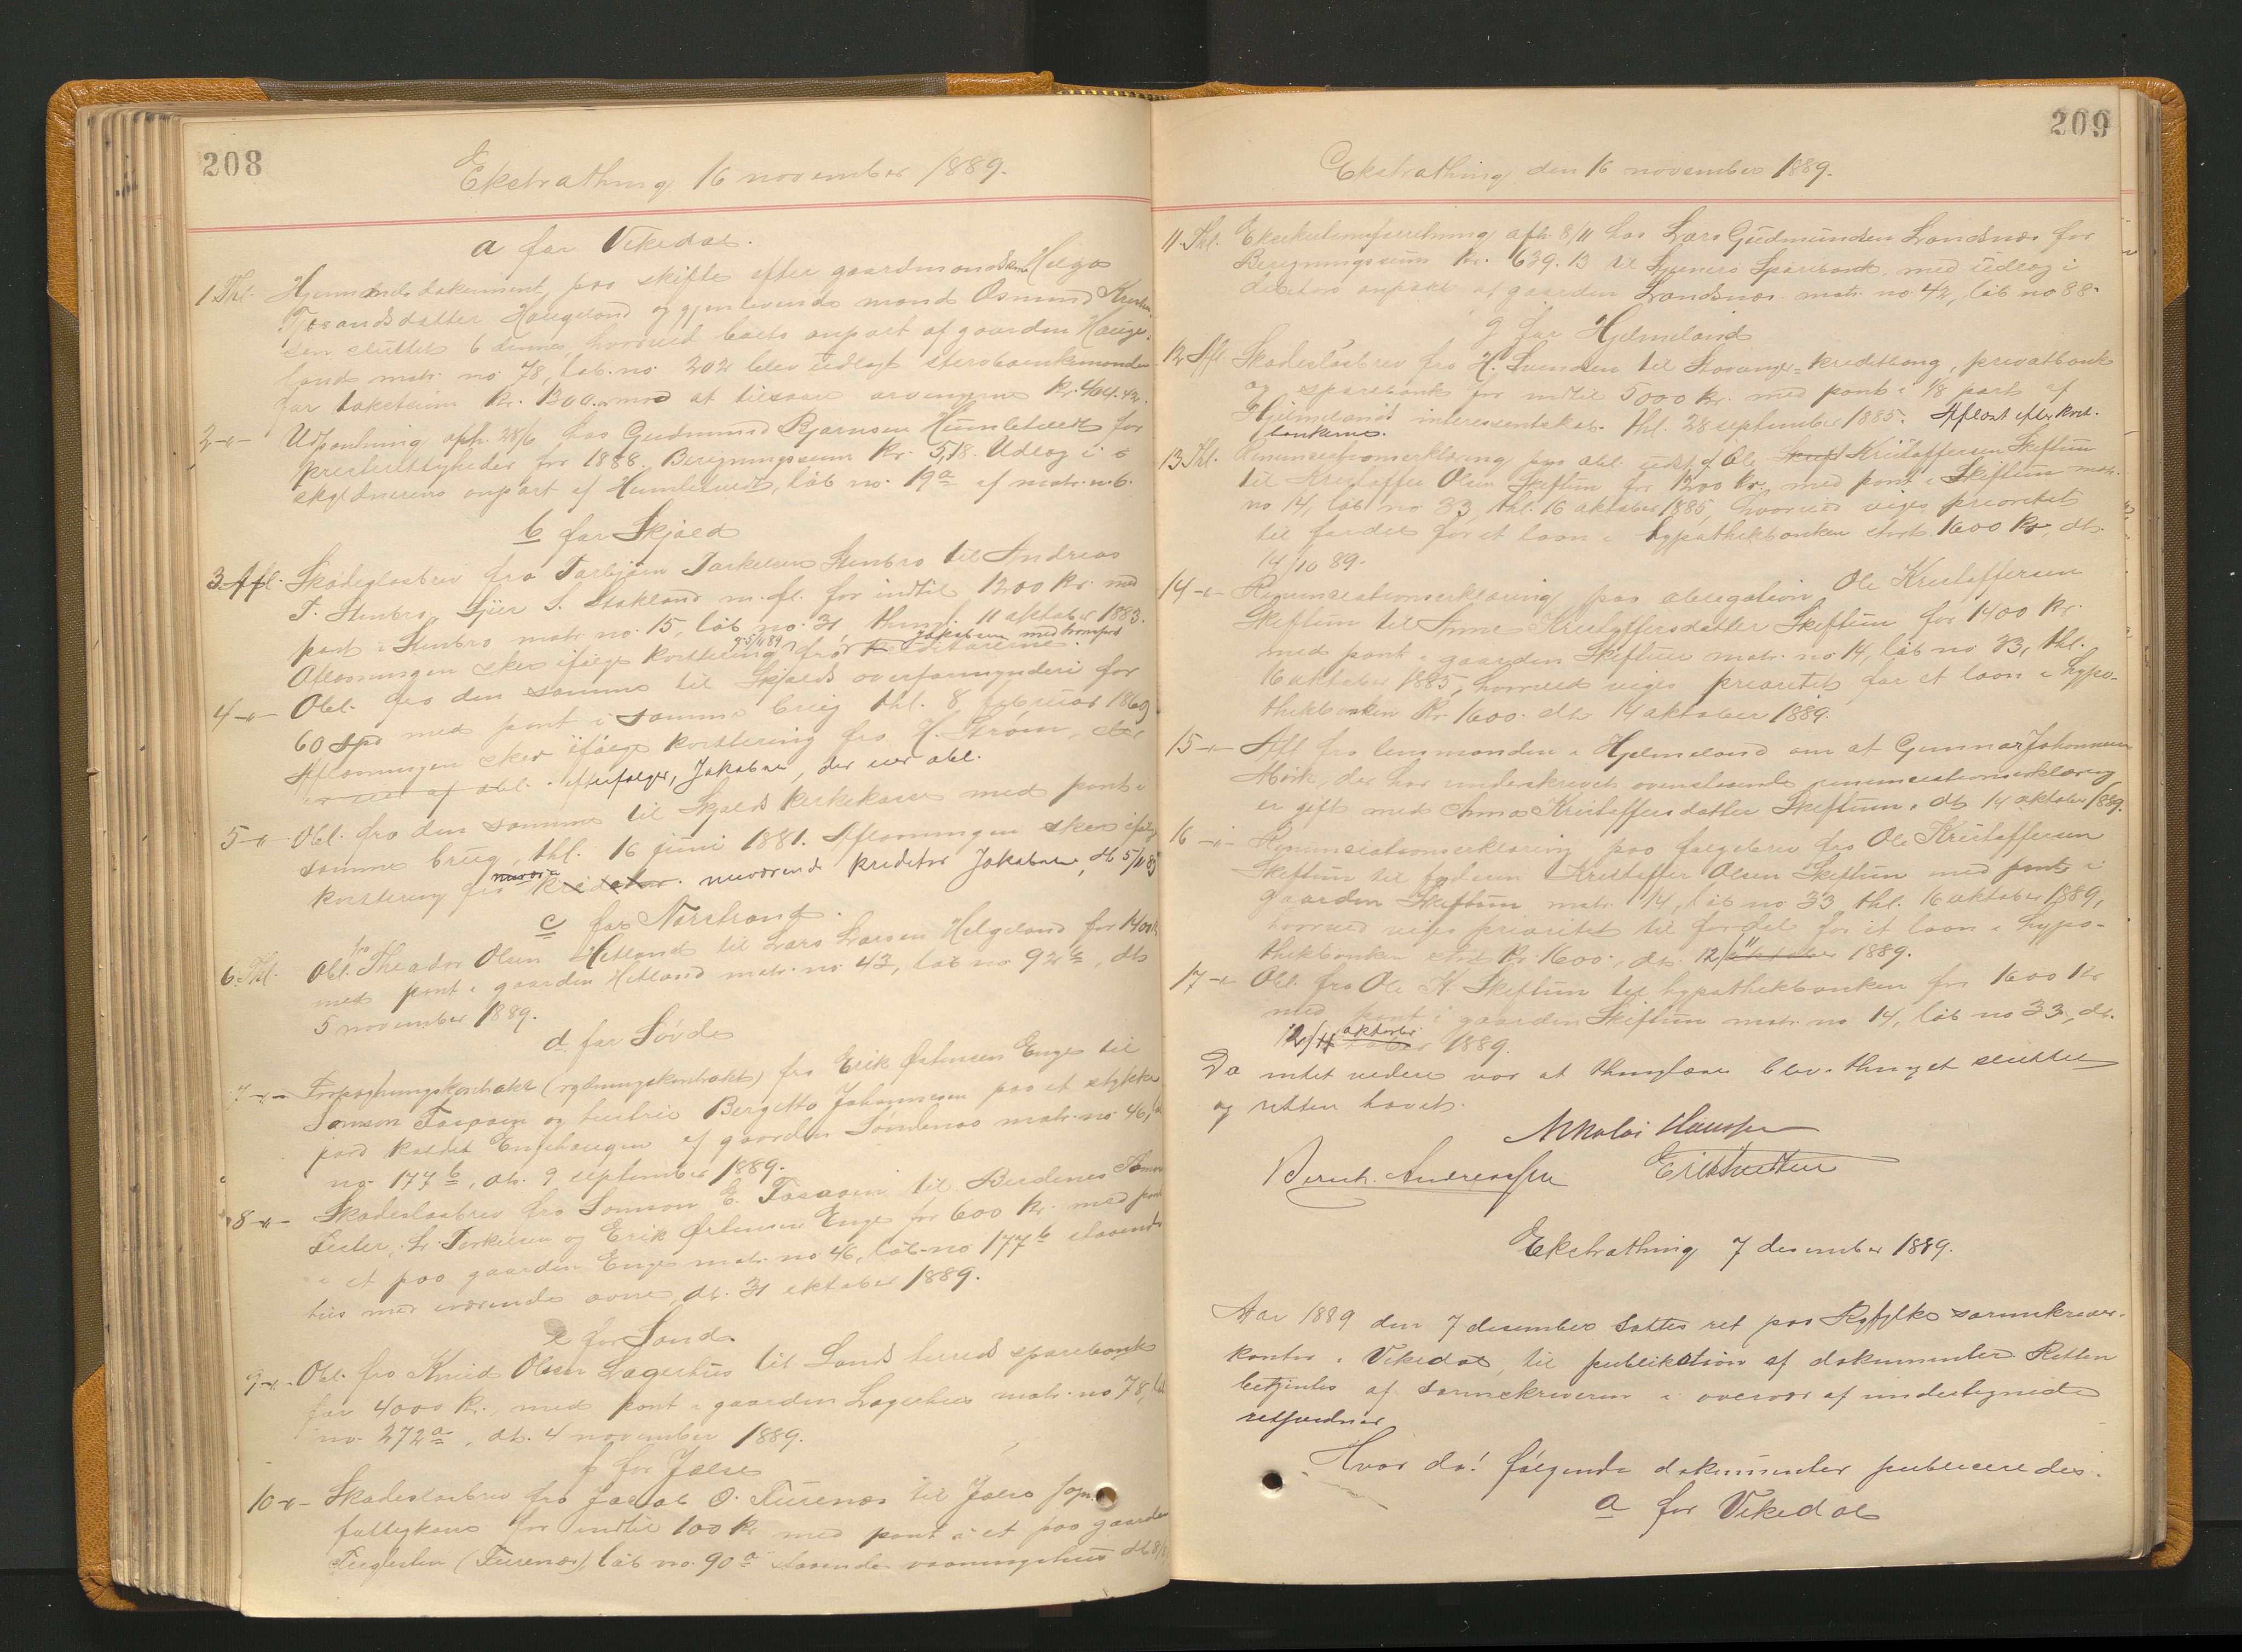 208
Ekstrathing 16 november 1889.
a for Vikedal.
1 Thl. Hjemmelsdokument paa skifte efter gaardmandskone Helga
Tjosandsdatter Haugeland og gjenlevende mand Osmund Kristen-
sen sluttet 6 dennes, hvorved boets anpart af gaarden Hauge-
land matr. no 78, løb. no. 202 blev udlagt stervboenkemanden
for takstsum Kr. 1300. mod at tilsvare arvingerne Kr. 404.42.
2 -"- Udpantning afh. 28/6 hos Gudmund Bjørnsen Humletvedt for
presterettigheder for 1888. Beregningssum Kr. 5,18. Udlæg i
skyldnerens anpart af Humletvedt, løb no. 19a af matr. no 6.
b for Skjold
3 Afl. Skadesløsbrev fra Torbjørn Torkelsen Stenbro til Andreas
T. Stenbro, Sjur S. Stakland m. fl. for indtil 1200 Kr. med
pant i Stenbro matr no. 15, løb no. 31 thingl. 11 oktober 1883.
Aflæsningen sker ifølge kvittering d. 5/11 89 fra Jakobsen med transport
4 -"- Obl. fra den samme til Skjolds overformynderi for
60 Spd med pant i samme brug thl. 8 februar 1869
Aflæsningen sker ifølge kvittering fra H. Strøm,
efterfølger, Jakobsen, der eier obl.
5 -"- Obl. fra den samme til Skjolds kirkekasse med pant i
samme brug, thl. 16 juni 1881. Aflæsningen sker ifølge
kvittering fra kreditor. nuværende kreditor Jakobsen, dt 5/11 89
c for Nærstrand.
6 Thl. Obl. fra Theodor Olsen Hetland til Lars Larsen Helgeland for 1400 Kr
med pant i gaarden Hetland matr. no 43, løb no 92b, dt.
5 november 1889.
d for Søvde
7 -"- Forpagtningskontrakt (rydningskontrakt) fra Erik Østensen Enge til
Samson og hustru Bergitte Johannesen paa et stykke
jord kaldet Engehaugen af gaarden Søndenaa matr. no 46, løb
no. 177b, dt. 9 september 1889.
8 -"- Skadesløsbrev fra Samson E. til Berdines
L. Torkelsen og Erik Østensen Enge for 600 Kr. med pant
i et paa gaarden Enge matr. no 46, løb. no 177b staaende
hus med iværende ovne, dt. 31 oktober 1889.
e for Sand.
9 -"- Obl. fra Knud Olsen Lagerhus til Sands herreds sparebank
for 4000 Kr., med pant i gaarden Lagerhus matr. no 78, løb
no. 272a, dt. 4 november 1889.
f for Jælse
10 -"- Skadesløsbrev fra Jacob O. Furenæs til Jælse sogns
fattigkasse for indtil 100 Kr med pant i et paa gaarden
(Furenæs), løb no. 90a staaende vaaningshus dt 8/11
209
Ekstrathing den 16 november 1889.
11. Thl. Eksekutionsforretning afh. 8/11 hos Lars Gudmundsen Landsnæs for
Beregningssum Kr. 639.13 til Hjerners Sparebank, med udlæg i
debitors anpart af gaarden Landsnæs matr. no 42, løb no 88.
g for Hjelmeland
12 Afl. Skadesløsbrev fra H. Svendsen til Stavanger kreditbank, privatbank
og sparebank for indtil 5000 Kr. med pant i 1/8 part af
Hjelmelands interessentskab. thl. 28 september 1885. Aflæst efter kvit.
bankerne.
13 Thl. Renunciationserklæring paa obl. udst. af Ole Kristoffersen Skiftun
til Kristoffer Olsen Skiftun for 1200 Kr. med pant i Skiftun matr.
no 14, løb no 33, thl. 16 oktober 1885, hvorved viges prioritet
til fordel for et laan i hypothekbanken stort 1600 Kr, dt.
14/10 89.
14 -"- Renunciationserklæring paa obligation Ole Kristoffersen
Skiftun til Anne Kristoffersdatter Skiftun for 1400 Kr.
med pant i gaarden Skiftun matr. no 14, løb no 33, thl.
16 oktober 1885, hvorved viges prioritet for et laan i hypo-
thekbanken Kr. 1600. dt 14 oktober 1889.
15 -"- Att fra lensmanden i Hjelmeland om at Gunnar Johannesen
Mørk, der har underskrevet ovenstaaende renunciationserklæring
er gift med Anna Kristoffersdatter Skiftun. dt 14 oktober 1889.
16 -"- Renunciationserklæring paa følgebrev fra Ole Kristoffersen
Skiftun til faderen Kristoffer Olsen Skiftun med pant i
gaarden Skiftun matr. 14, løb no 33 thl. 16 oktober 1889,
hvorved viges prioritet til fordel for et laan i hypo-
thekbanken stort Kr. 1600., dt. 12/11 oktober 1889.
17 -"- Obl. fra Ole K. Skiftun til hypothekbanken for 1600 Kr
med pant i gaarden Skiftun matr. no 14, løb no 33, dt.
12/11 oktober 1889.
Da intet videre var at thinglæse blev thinget sluttet
og retten hævet.
Nikolai Hansen
Bernh. Andreassen
Ekstrathing 7 desember 1889.
Aar 1889 den 7 desember sattes ret paa Ryfylke sorenskriver-
kontor i Vikedal, til publikation af dokumenter. Retten
betjentes af sorenskriveren i overvær af undertegnede
retsvidner
Hvor da! følgende dokumenter publiceredes.
a for Vikedal